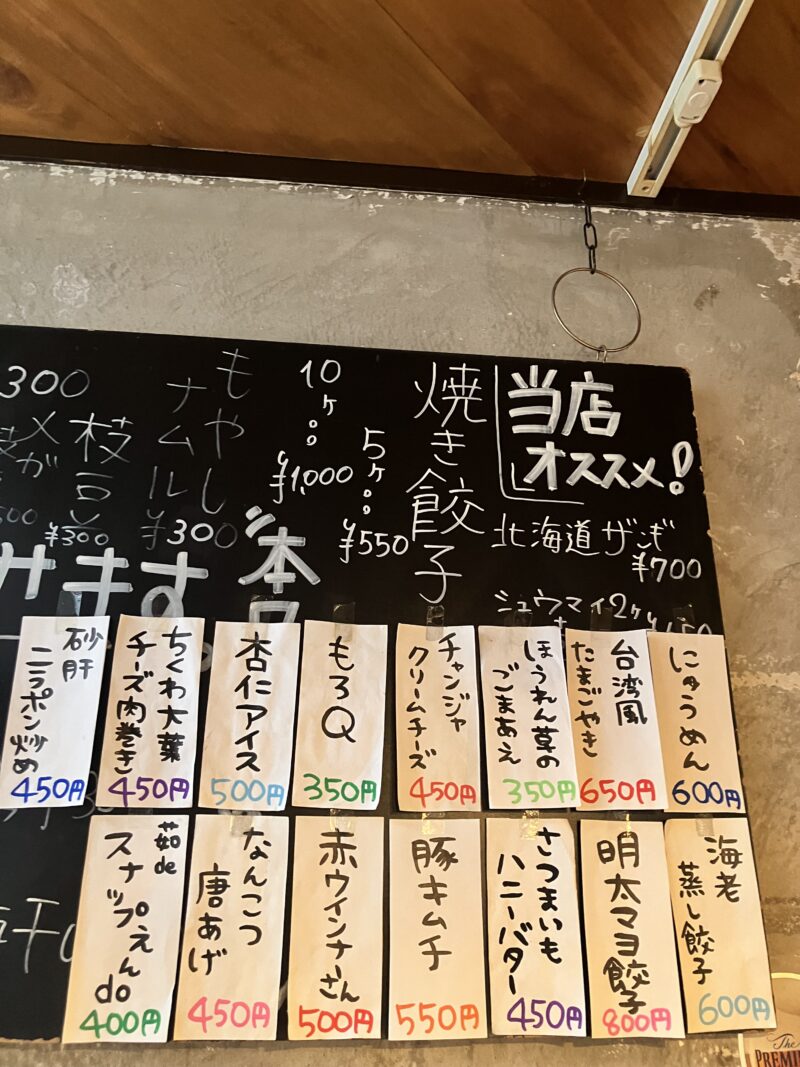 当店
オススメ!
北海道ザンギ
¥700
シュウマイ2ケ
焼き餃子
5ケ
¥550
10ケ
¥1,000
もやし
ナムル
¥300
枝豆
¥300
300
みます。
にゅうめん
600円
台湾風
たまごやき
650円
ほうれん草の
ごまあえ
350円
チャンジャ
クリームチーズ
450円
もろQ
350円
杏仁アイス
500円
ちくわ大葉
チーズ肉巻き
450円
砂肝
ニラポン炒め
450円
海老
蒸し餃子
600円
明太マヨ餃子
800円
さつまいも
ハニーバター
450円
豚キムチ
550円
赤ウインナーさん
500円
なんこつ
唐あげ
450円
茹de
スナップえんdo
400円
The
PREMI